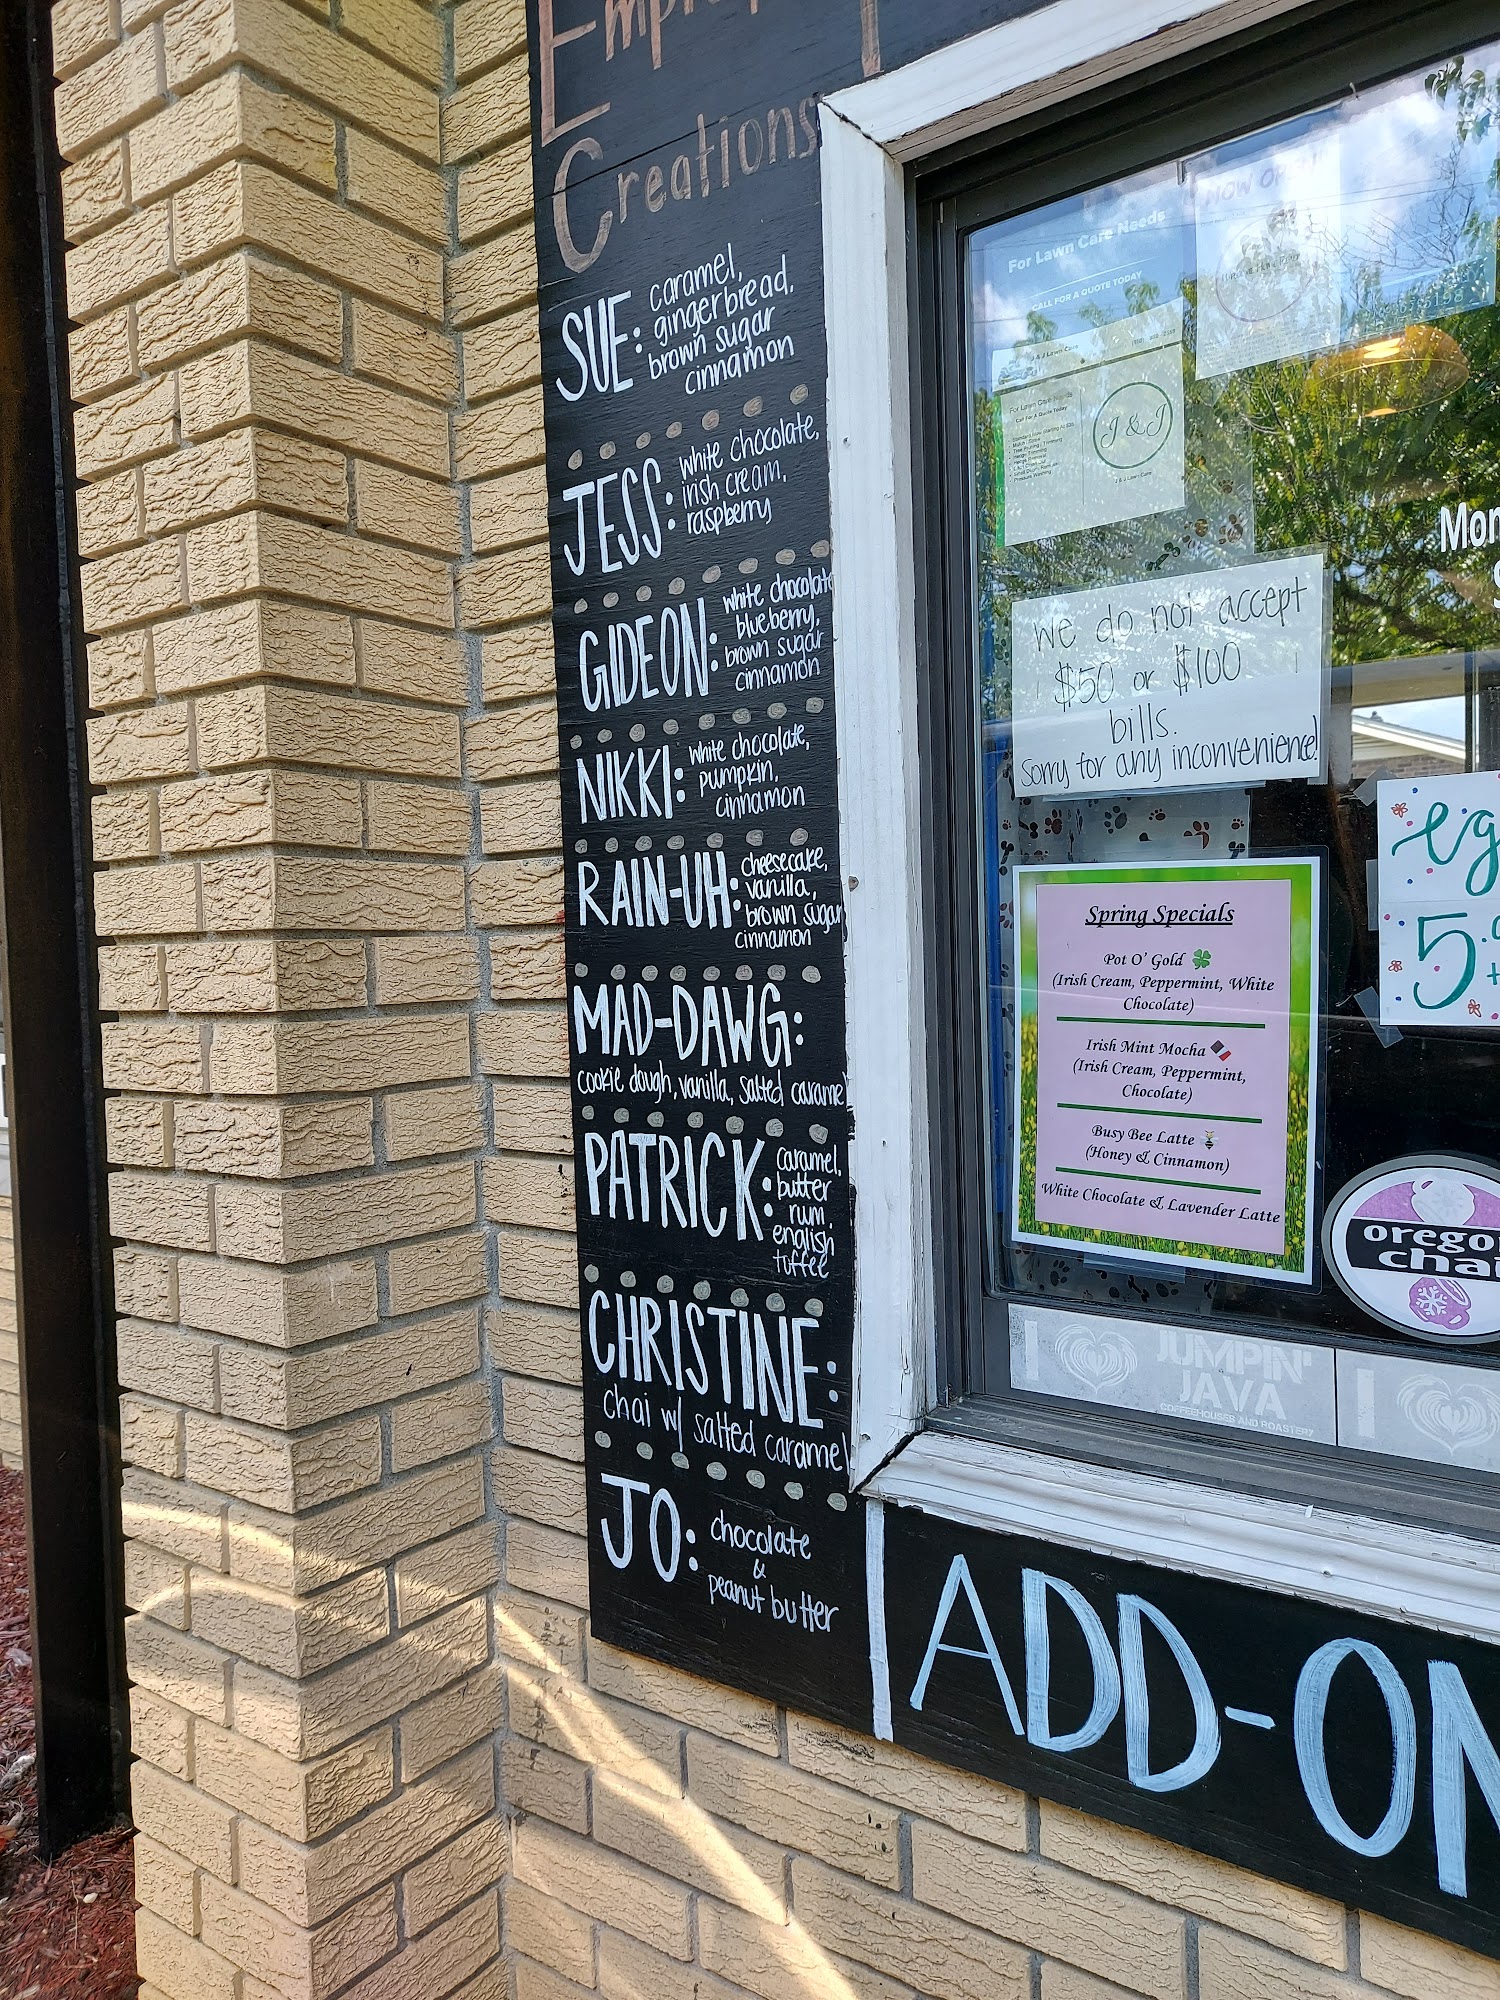 Creations
SUE:
caramel,
gingerbread,
brown sugar
cinnamon
JESS:
white chocolate,
irish cream,
raspberry
GIDEON:
white chocolate
blueberry,
brown sugar
cinnamon
NIKKI:
white chocolate,
pumpkin,
cinnamon
RAIN-UH:
cheesecake,
vanilla,
brown sugar
cinnamon
MAD-DAWG:
cookie dough, vanilla, salted caramel
PATRICK:
caramel,
butter
rum,
english
toffee
CHRISTINE:
chai w/ salted caramel
JO:
chocolate
&
peanut butter
ADD-ON
For Lawn Care Needs
CALL FOR A QUOTE TODAY
J & J Lawn Care
For Lawn Care Needs
Call For A Quote Today
J & J
J & J Lawn Care
We do not accept
$50 or $100
bills.
Sorry for any inconvenience!
Spring Specials
Pot O' Gold
(Irish Cream, Peppermint, White
Chocolate)
Irish Mint Mocha
(Irish Cream, Peppermint,
Chocolate)
Busy Bee Latte
(Honey & Cinnamon)
White Chocolate & Lavender Latte
Mon
eg
5.
orego
chai
I
JUMPIN'
JAVA
COFFEEHOUSES AND ROASTERY
I